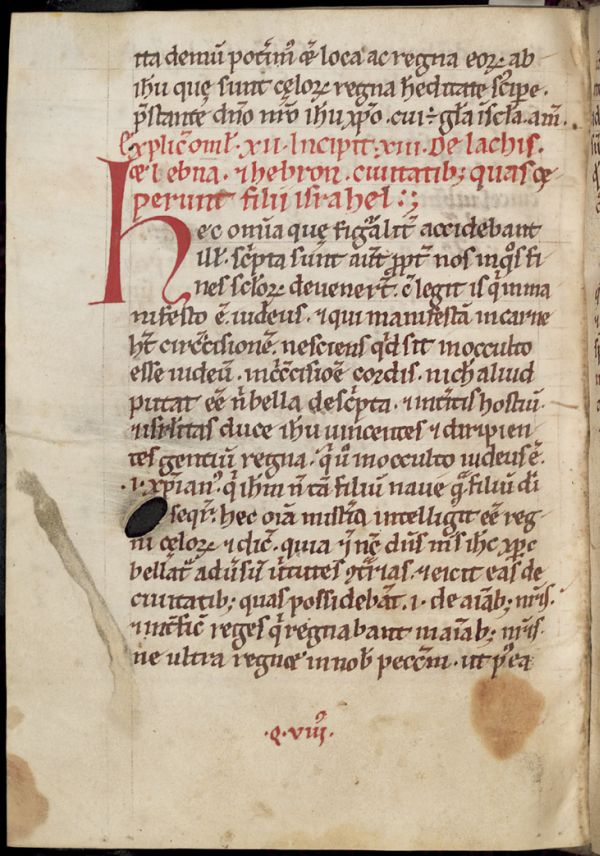 tta demū poti᷒mꝰ ⁊ loca ac regna eoꝝ ab
ihū quę sunt cęloꝝ regna hėditate scipe.
p̄stante dn̄o nr̄o ihū xp̄o. cui ÷ gl̄a ī scl̄a. am̄.
Explič omł. xii. Incipit xiii. De lachis.
⁊ lebna. ⁊ hebron. ciuitatib; quas ce
perunt filii israhel:;
Hec om̄ia quę figał̄it accidebant
ill̓. sc̓pta sunt aut̄ ꝓpt̄ nos in qͦs fi
nes scl̓oꝝ deuener̄t. c̄ legit is q̓ in ma
nifesto ē. iudeus. ⁊ qui manifestā in carne
ht̄ circ̄cisionē. nesciens qd̓ sit in occulto
esse iudeū. ⁊ c̄cisioē cordis. nichˡ aliud
putat eē n̄ bella desc̓pta. ⁊ int̄itꝰ hostiū.
⁊ isrl̓itas duce ihū uincentes ⁊ diripien
tes gentiū regna. q̓ ū in occulto iudeus ē.
.i. xp̄ianꝰ. q̓ ihm̄ n̄ tā filiū naue qͣ filiū dī
seq̓t. hec om̄ā mistīa intelligit eē reg
ni cęloꝝ ⁊ dic̄. quia ⁊ nc̄ dn̄s nr̄s ihc̄ xp̄c
bellat᷑ adūsū ūtutes ꝯt̄rias. ⁊ eicit eās de
ciuitatib; quas possidebāt. .i. de aīab; nr̄is.
⁊ int̄fic̄ reges q̓ regnabant in aīab; nr̄is.
ne ultra regnet in nob̓ pecc̄m. ut p̄ ea
.Q. viiiꝰ.